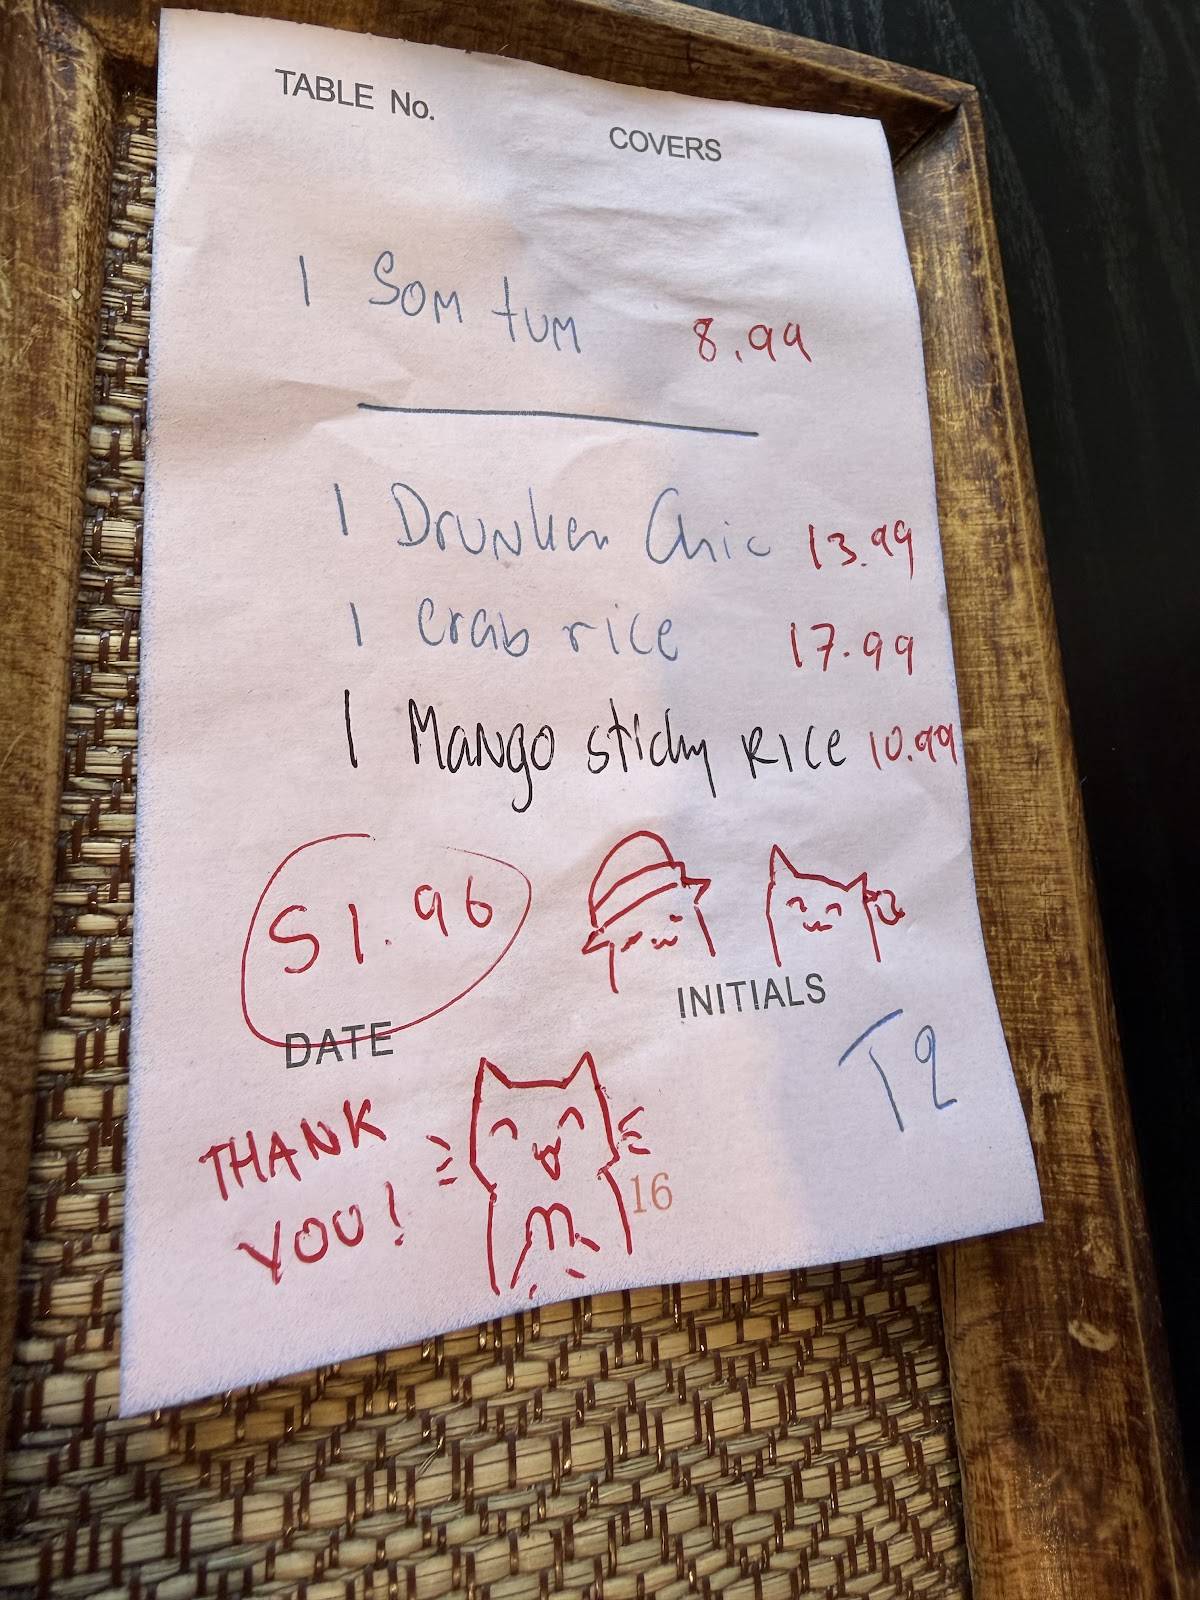 TABLE No.
COVERS
1 Som tum 8.99
1 Drunken Chic 13.99
1 Crab rice 17.99
1 Mango sticky Rice 10.99
51.96
INITIALS
DATE
T2
THANK
YOU!
16